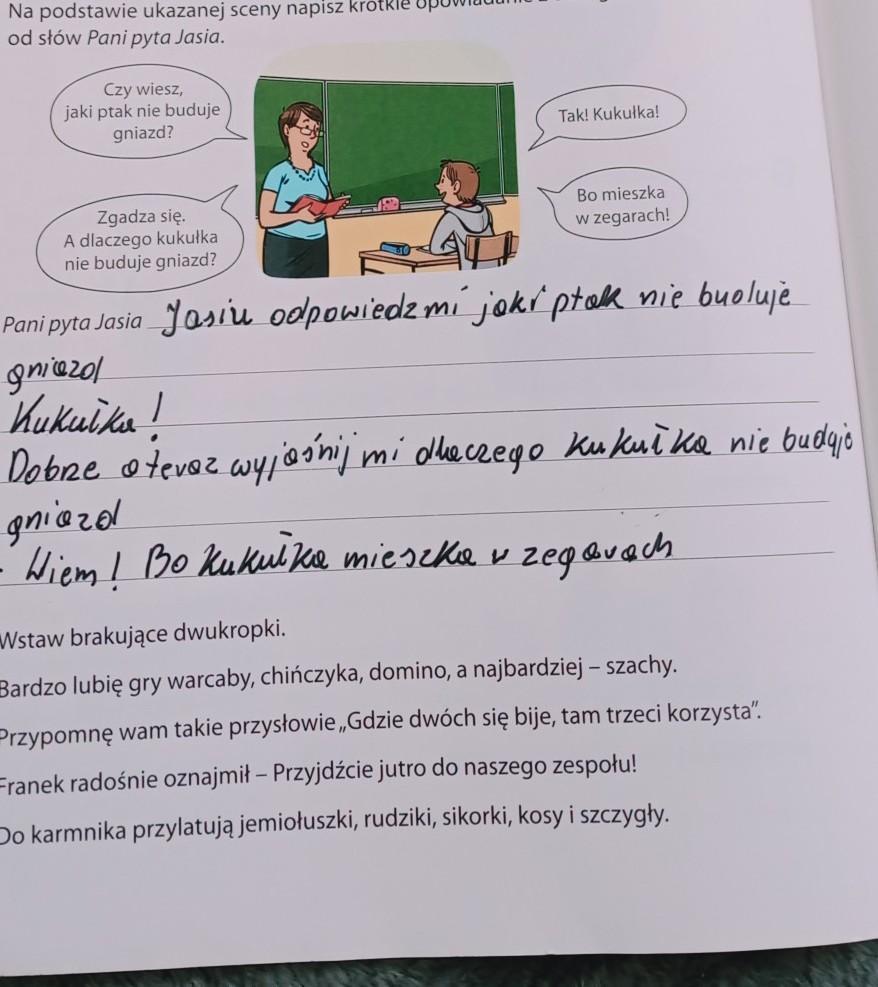 Na podstawie ukazanej sceny napisz krótkie
od słów Pani pyta Jasia.
Czy wiesz,
jaki ptak nie buduje
gniazd?
Tak! Kukułka!
Zgadza się.
A dlaczego kukułka
nie buduje gniazd?
Bo mieszka
w zegarach!
Pani pyta Jasia Jasiu odpowiedz mi jaki ptak nie buduje
gniazd
Kukułka!
Dobrze a teraz wyjaśnij mi dlaczego kukułka nie buduje
gniazd
- Wiem! Bo kukułka mieszka w zegarach
Wstaw brakujące dwukropki.
Bardzo lubię gry warcaby, chińczyka, domino, a najbardziej – szachy.
Przypomnę wam takie przysłowie „Gdzie dwóch się bije, tam trzeci korzysta”.
Franek radośnie oznajmił – Przyjdźcie jutro do naszego zespołu!
Do karmnika przylatują jemiołuszki, rudziki, sikorki, kosy i szczygły.